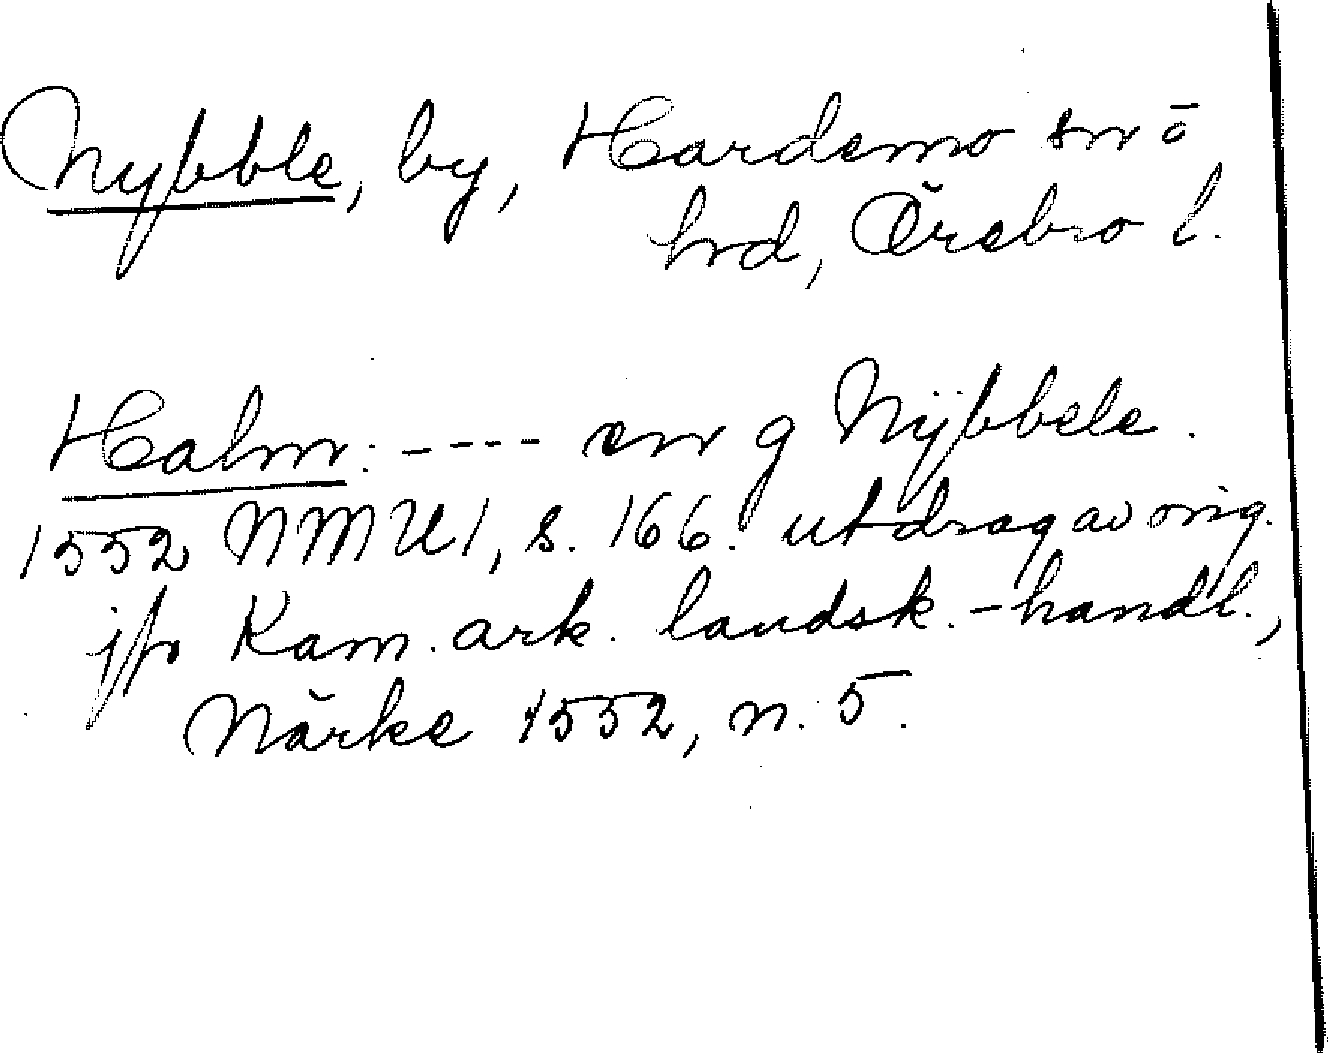 Nybble, by, Hardemo sn o
hrd, Örebro l.
Halm: ---- en g Nÿbbele.
1552 NMU1, s. 166. utdrag av orig.
jfr Kam. ark. landsk.-handl.,
Närke 1552, n. 5.